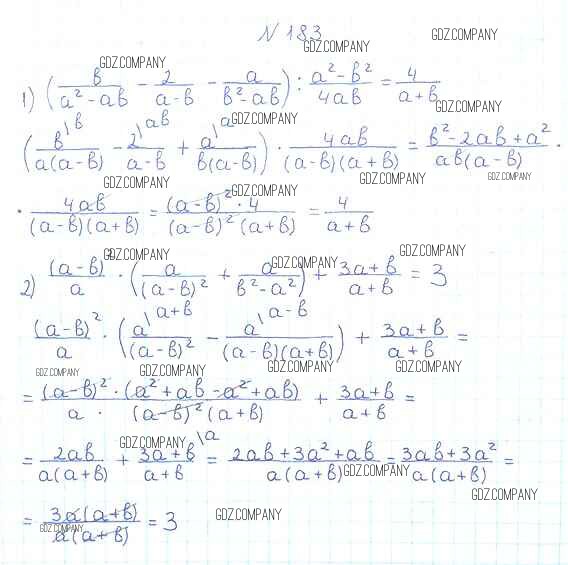 N 183
GDZ.COMPANY GDZ.COMPANY GDZ.COMPANY
1) (b/(a² - ab) - 2/(a - b) - a/(b² - ab)) : (a² - b²)/(4ab) = 4/(a + b)
GDZ.COMPANY GDZ.COMPANY
(b\b/(a(a - b)) - 2\ab/(a - b) + a\a/(b(a - b))) · 4ab/((a - b)(a + b)) = (b² - 2ab + a²)/(ab(a - b)) ·
GDZ.COMPANY GDZ.COMPANY GDZ.COMPANY GDZ.COMPANY
· 4ab/((a - b)(a + b)) = ((a - b)² · 4)/((a - b)²(a + b)) = 4/(a + b)
GDZ.COMPANY GDZ.COMPANY GDZ.COMPANY
2) (a - b)²/a · (a/(a - b)² + a/(b² - a²)) + (3a + b)/(a + b) = 3
(a - b)²/a · (a\a + b/(a - b)² - a\a - b/((a - b)(a + b))) + (3a + b)/(a + b) =
GDZ.COMPANY GDZ.COMPANY GDZ.COMPANY GDZ.COMPANY
= ((a - b)² · (a² + ab - a² + ab))/(a · (a - b)²(a + b)) + (3a + b)/(a + b) =
GDZ.COMPANY
= 2ab/(a(a + b)) + (3a + b)\a/(a + b) = (2ab + 3a² + ab)/(a(a + b)) = (3ab + 3a²)/(a(a + b)) =
GDZ.COMPANY GDZ.COMPANY
= (3a(a + b))/(a(a + b)) = 3
GDZ.COMPANY GDZ.COMPANY